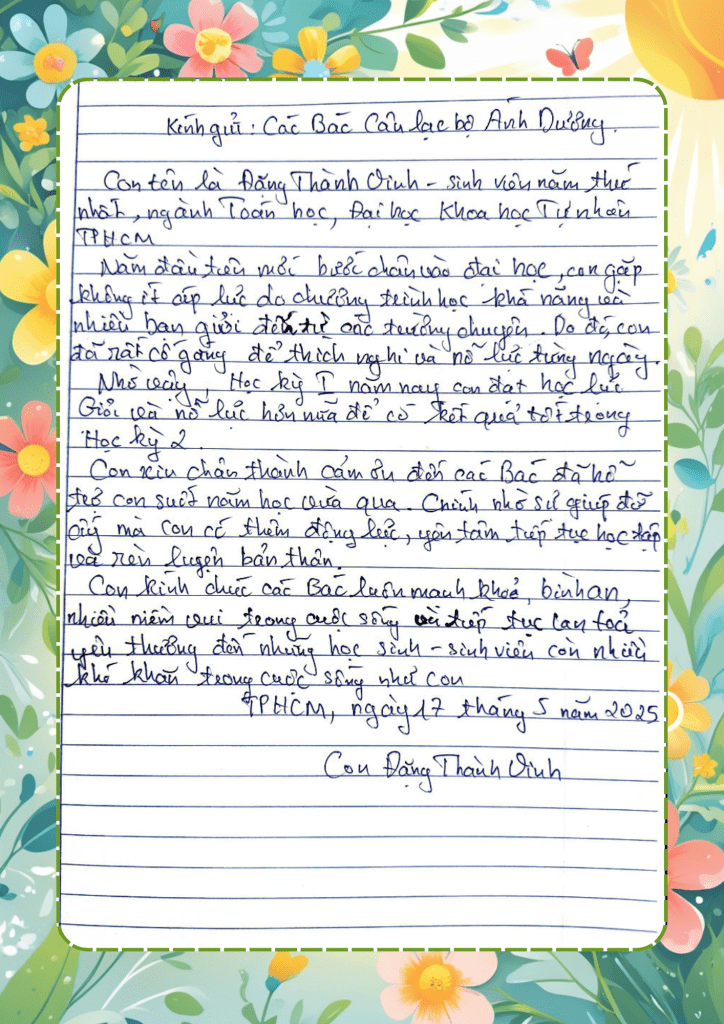 Kính gửi: Các Bác Câu lạc bộ Ánh Dương.
Con tên là Đặng Thành Vinh - sinh viên năm thứ
nhất, ngành Toán học, Đại học Khoa học Tự nhiên
TPHCM
Năm đầu tiên mới bước chân vào đại học, con gặp
không ít áp lực do chương trình học khá nặng và
nhiều bạn giỏi đến từ các trường chuyên. Do đó, con
đã rất cố gắng để thích nghi và nỗ lực từng ngày.
Nhờ vậy, Học kỳ I năm nay con đạt học lực
Giỏi và nỗ lực hơn nữa để có kết quả tốt trong
Học kỳ 2.
Con xin chân thành cảm ơn đến các Bác đã hỗ
trợ con suốt năm học vừa qua. Chính nhờ sự giúp đỡ
ấy mà con có thêm động lực, yên tâm tiếp tục học tập
và rèn luyện bản thân.
Con kính chúc các Bác luôn mạnh khoẻ, bình an,
nhiều niềm vui trong cuộc sống và tiếp tục lan toả
yêu thương đến những học sinh - sinh viên còn nhiều
khó khăn trong cuộc sống như con
TPHCM, ngày 17 tháng 5 năm 2025
Con Đặng Thành Vinh